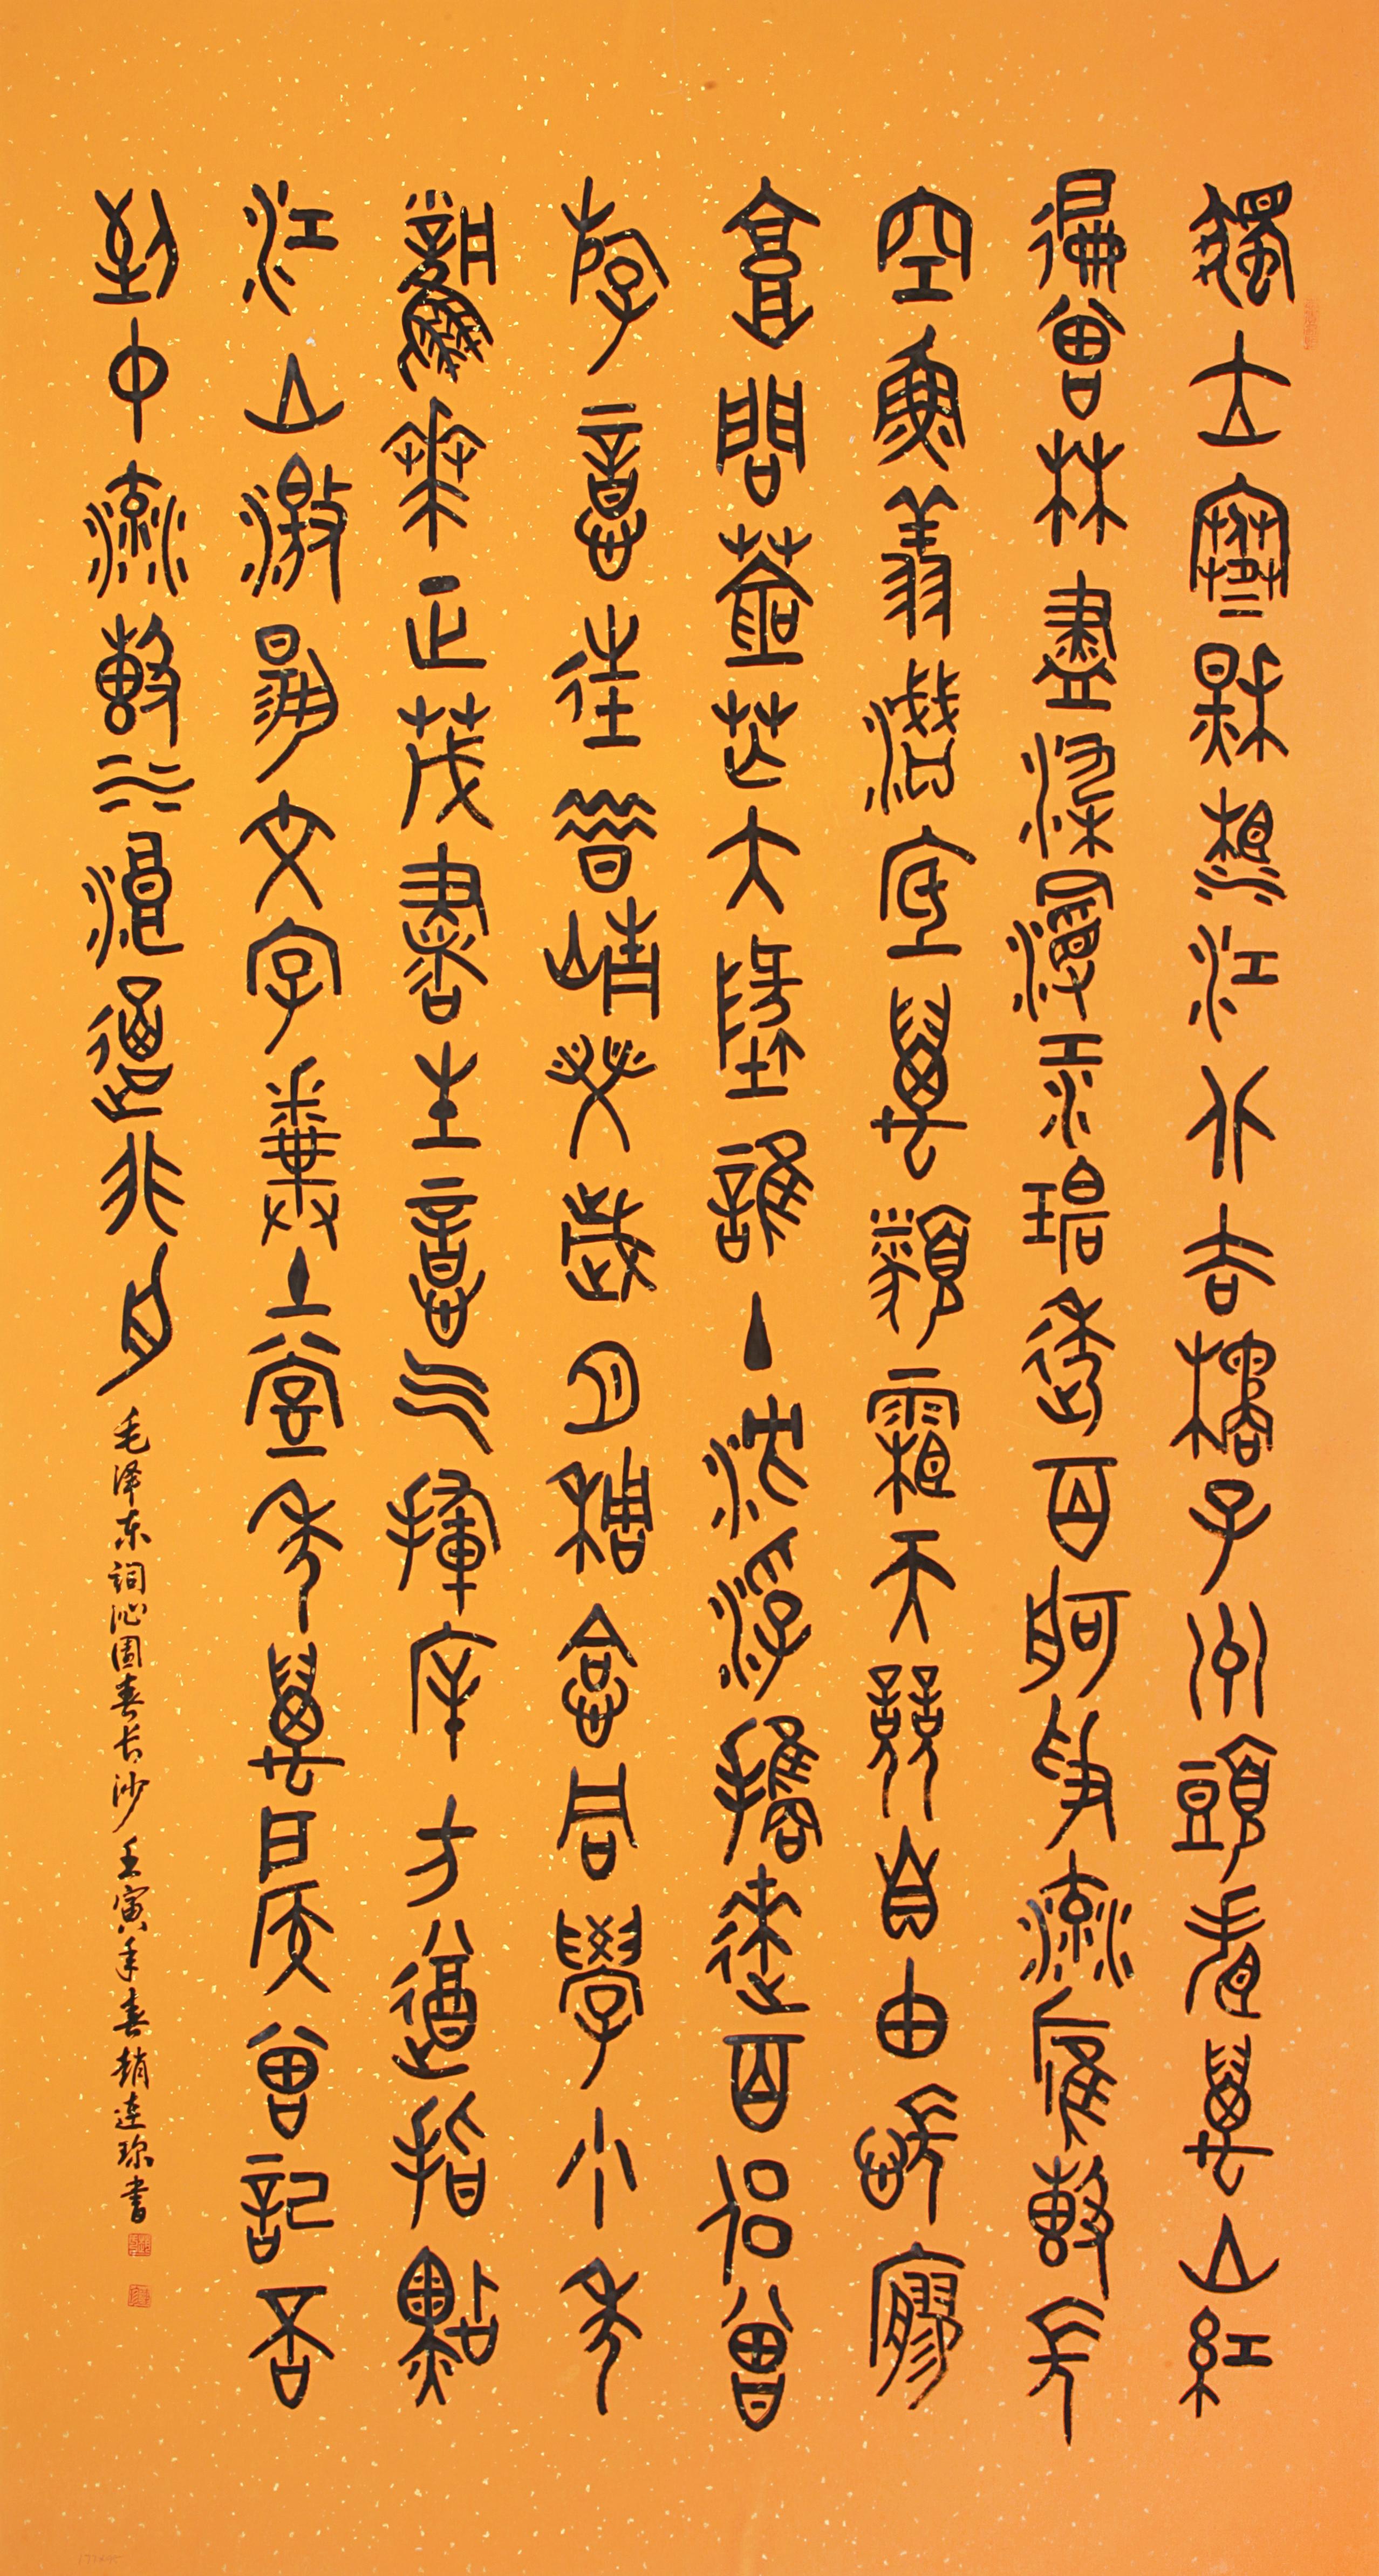 獨立寒秋湘江北去橘子洲頭看萬山紅
遍層林盡染漫江碧透百舸爭流鷹擊長
空魚翔淺底萬類霜天競自由悵寥
廓問蒼茫大地誰主沉浮攜來百侶曾
游憶往昔崢嶸歲月稠恰同學少年
風華正茂書生意氣揮斥方遒指點
江山激揚文字糞土當年萬戶侯曾記否
到中流擊水浪遏飛舟
毛泽东詞沁園春长沙 壬寅年春趙連珍书